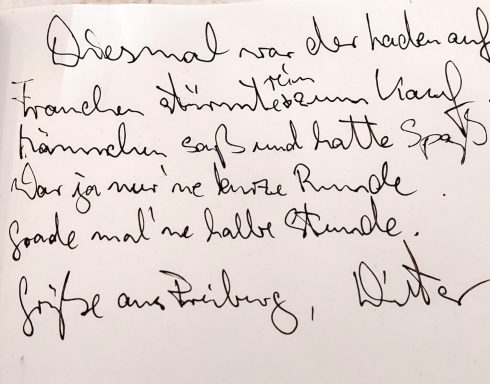 Diesmal war der Laden auf
Frauchen stürmte rein zum Kauf.
Männchen saß und hatte Spaß
War ja nur 'ne kurze Runde.
Grade mal 'ne halbe Stunde.
Grüße aus Freiburg, Dieter